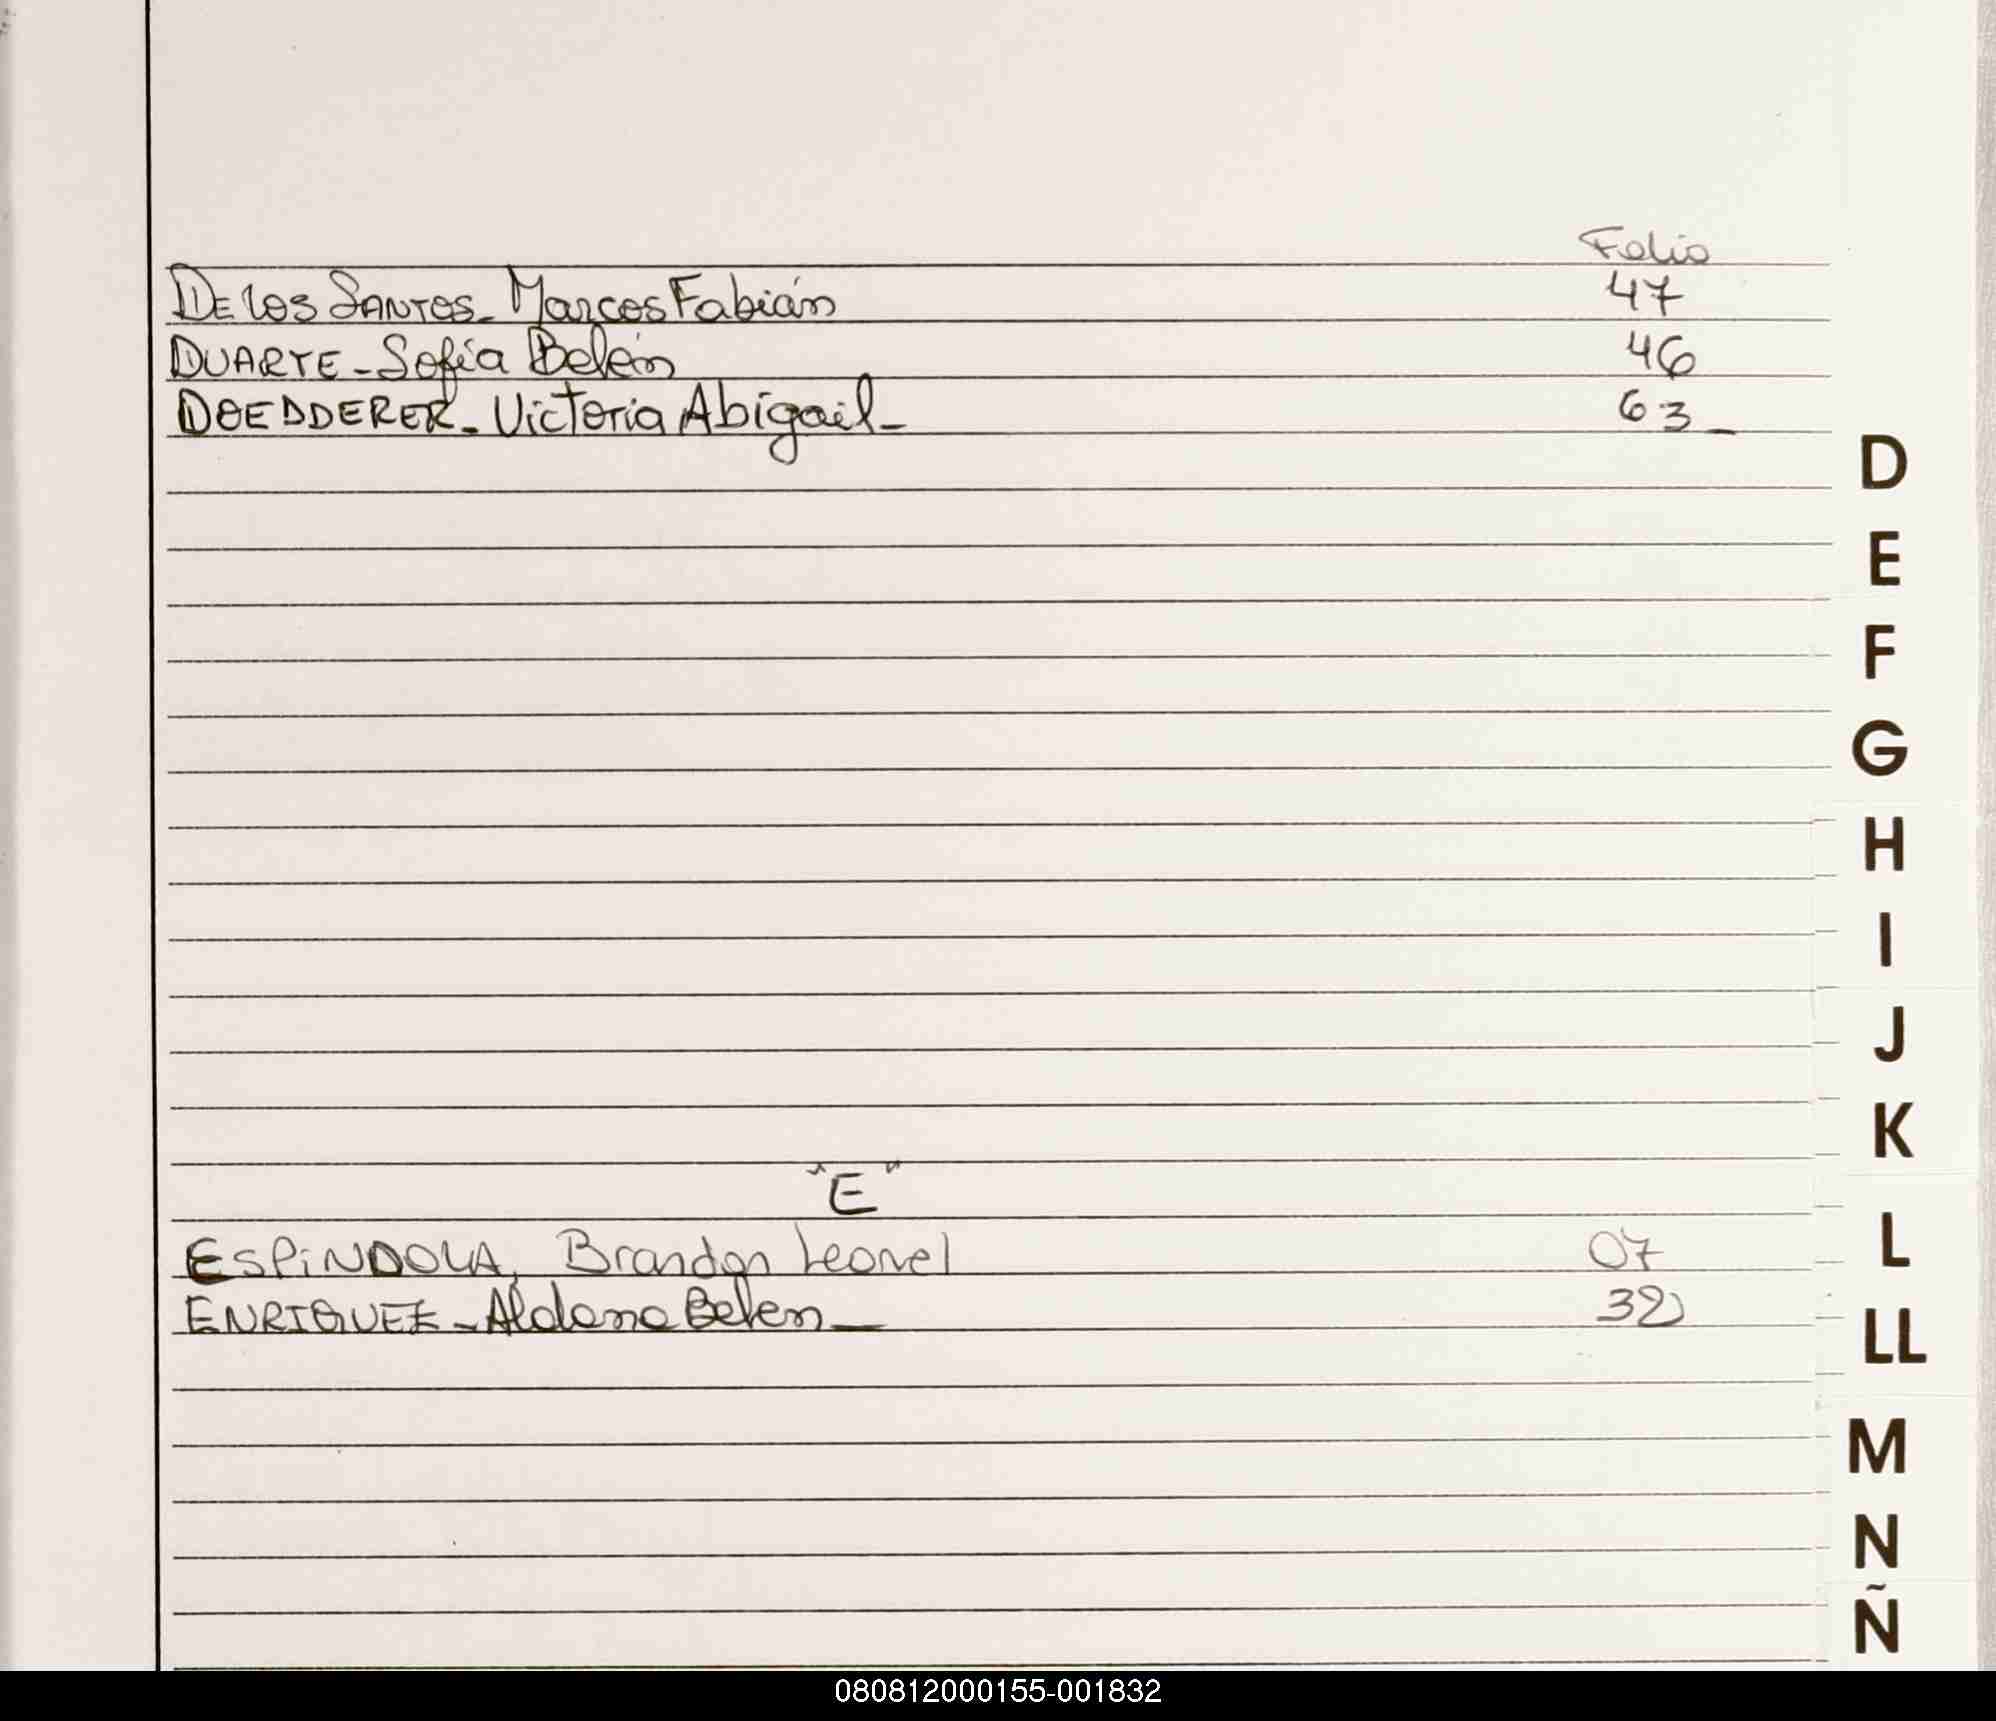 Folio
DE LOS SANTOS - Marcos Fabián 47
DUARTE - Sofía Belén 46
DOEDDERER - Victoria Abigail - 63 -
D
E
F
G
H
I
J
K
"E"
ESPINDOLA, Brandon Leonel 07
L
ENRIQUEZ - Aldana Belen - 32
LL
M
N
Ñ
080812000155-001832